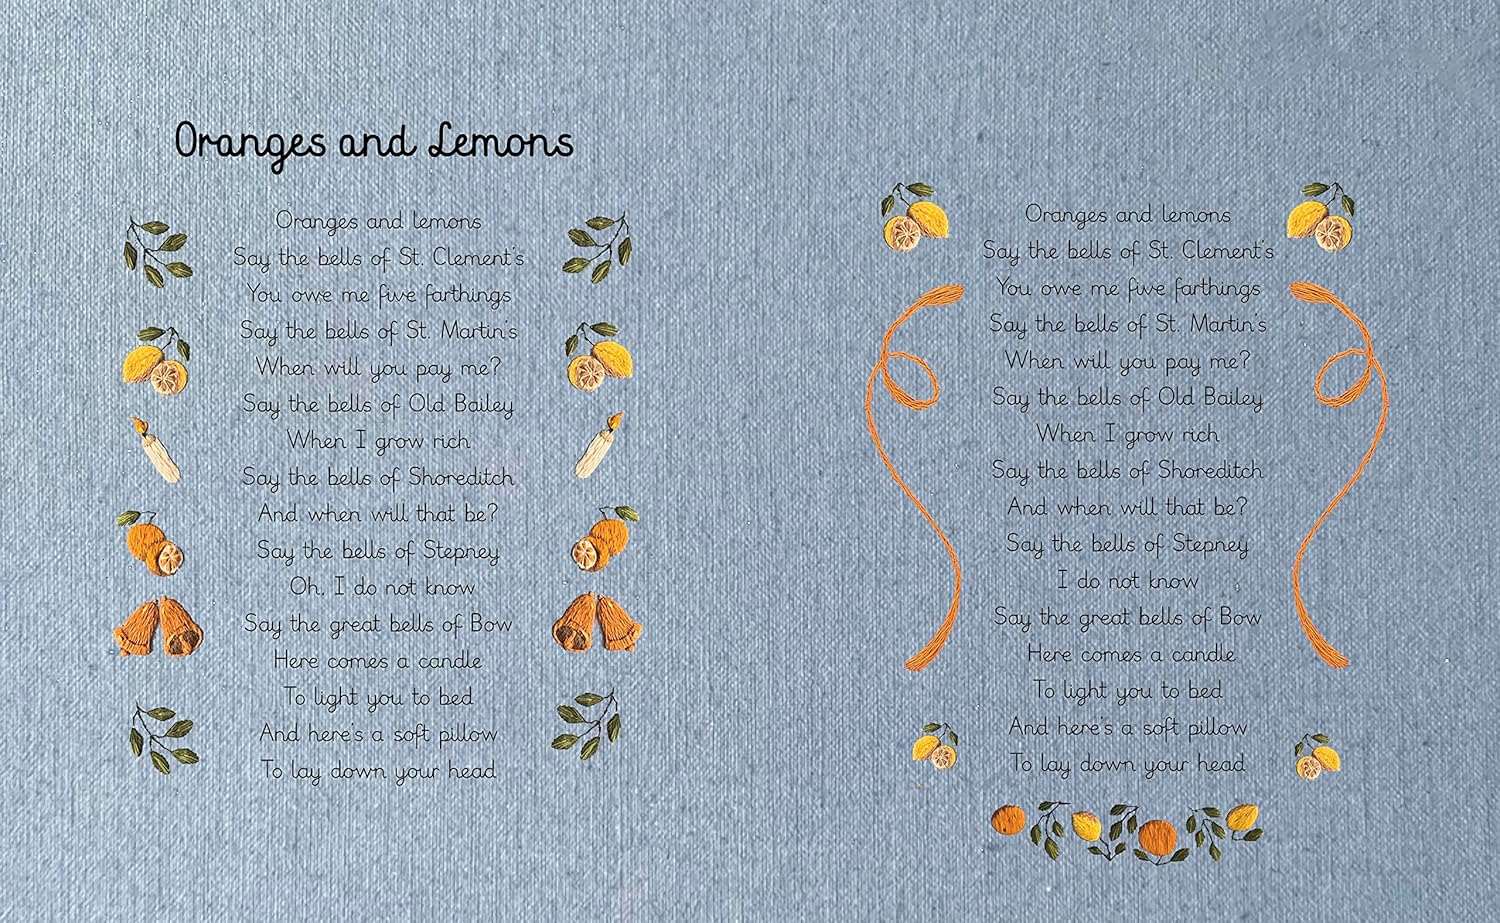 Oranges and Lemons
Oranges and lemons
Say the bells of St. Clement's
You owe me five farthings
Say the bells of St. Martin's
When will you pay me?
Say the bells of Old Bailey
When I grow rich
Say the bells of Shoreditch
And when will that be?
Say the bells of Stepney
Oh, I do not know
Say the great bells of Bow
Here comes a candle
To light you to bed
And here's a soft pillow
To lay down your head
Oranges and lemons
Say the bells of St. Clement's
You owe me five farthings
Say the bells of St. Martin's
When will you pay me?
Say the bells of Old Bailey
When I grow rich
Say the bells of Shoreditch
And when will that be?
Say the bells of Stepney
I do not know
Say the great bells of Bow
Here comes a candle
To light you to bed
And here's a soft pillow
To lay down your head